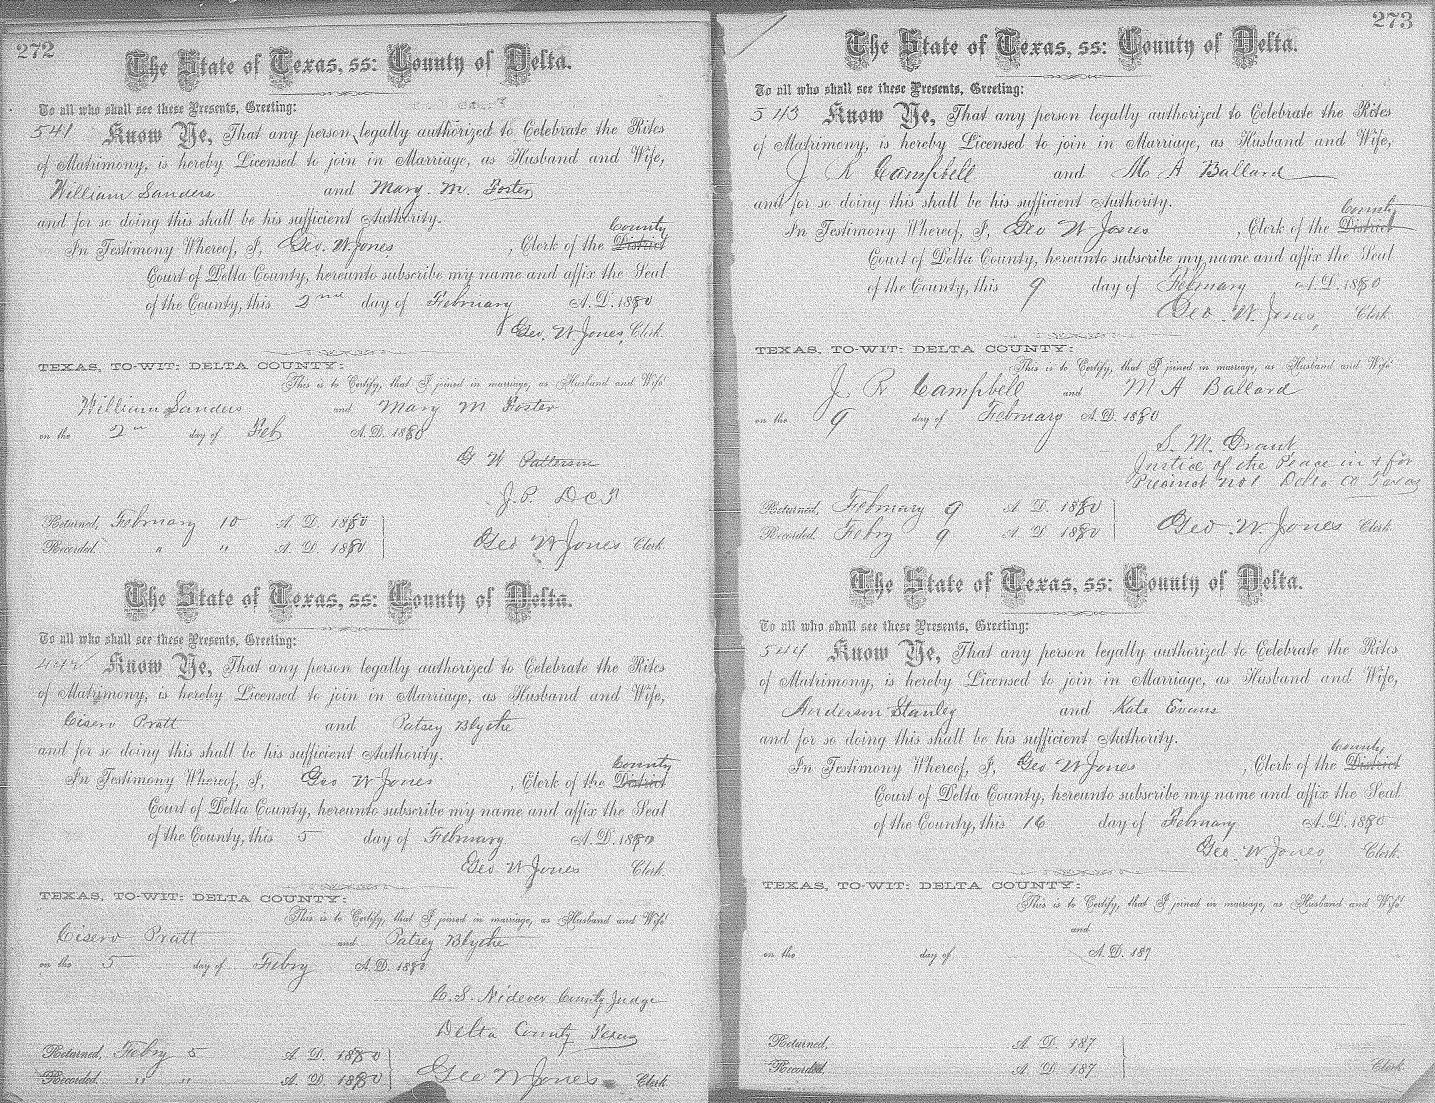 272
The State of Texas, ss: County of Delta.
To all who shall see these Presents, Greeting:
541 Know Ye, That any person legally authorized to Celebrate the Rites
of Matrimony, is hereby Licensed to join in Marriage, as Husband and Wife,
William Sanders and Mary. M. Foster
and for so doing this shall be his sufficient Authority.
County
In Testimony Whereof, I, Geo. W Jones, Clerk of the District
Court of Delta County, hereunto subscribe my name and affix the Seal
of the County, this 2nd day of February A. D. 1880
Geo. W Jones, Clerk.
TEXAS, TO-WIT: DELTA COUNTY:
This is to Certify, that I joined in marriage, as Husband and Wife
William Sanders and Mary M Foster
on the 2nd day of Feb A. D. 1880
G W Patterson
J. P. D C T
Returned, February 10 A. D. 1880
Recorded. " " A. D. 1880
Geo W Jones Clerk.
The State of Texas, ss: County of Delta.
To all who shall see these Presents, Greeting:
442 Know Ye, That any person legally authorized to Celebrate the Rites
of Matrimony, is hereby Licensed to join in Marriage, as Husband and Wife,
Cisero Pratt and Patsey Blythe
and for so doing this shall be his sufficient Authority.
County
In Testimony Whereof, I, Geo W Jones, Clerk of the District
Court of Delta County, hereunto subscribe my name and affix the Seal
of the County, this 5 day of February A. D. 1880
Geo W Jones Clerk.
TEXAS, TO-WIT: DELTA COUNTY:
This is to Certify, that I joined in marriage, as Husband and Wife
Cisero Pratt and Patsey Blythe
on the 5 day of Febry A. D. 1880
C. S. Nidever County Judge
Delta County Texas
Returned, Febry 5 A. D. 1880
Recorded. " " A. D. 1880
Geo W Jones Clerk
273
The State of Texas, ss: County of Delta.
To all who shall see these Presents, Greeting:
543 Know Ye, That any person legally authorized to Celebrate the Rites
of Matrimony, is hereby Licensed to join in Marriage, as Husband and Wife,
J R Campbell and M A Ballard
and for so doing this shall be his sufficient Authority.
County
In Testimony Whereof, I, Geo W Jones, Clerk of the District
Court of Delta County, hereunto subscribe my name and affix the Seal
of the County, this 9 day of February A. D. 1880
Geo. W. Jones, Clerk.
TEXAS, TO-WIT: DELTA COUNTY:
This is to Certify, that I joined in marriage, as Husband and Wife
J R Campbell and M A Ballard
on the 9 day of February A. D. 1880
S. M. Grant
Justice of the Peace in & for
Precinct No 1 Delta Co Texas
Returned, February 9 A. D. 1880
Recorded. Febry 9 A. D. 1880
Geo. W Jones Clerk.
The State of Texas, ss: County of Delta.
To all who shall see these Presents, Greeting:
544 Know Ye, That any person legally authorized to Celebrate the Rites
of Matrimony, is hereby Licensed to join in Marriage, as Husband and Wife,
Anderson Stanley and Kate Evans
and for so doing this shall be his sufficient Authority.
County
In Testimony Whereof, I, Geo W Jones, Clerk of the District
Court of Delta County, hereunto subscribe my name and affix the Seal
of the County, this 16 day of February A. D. 1880
Geo W Jones, Clerk.
TEXAS, TO-WIT: DELTA COUNTY:
This is to Certify, that I joined in marriage, as Husband and Wife
and
on the day of A. D. 187
Returned, A. D. 187
Recorded. A. D. 187
Clerk.